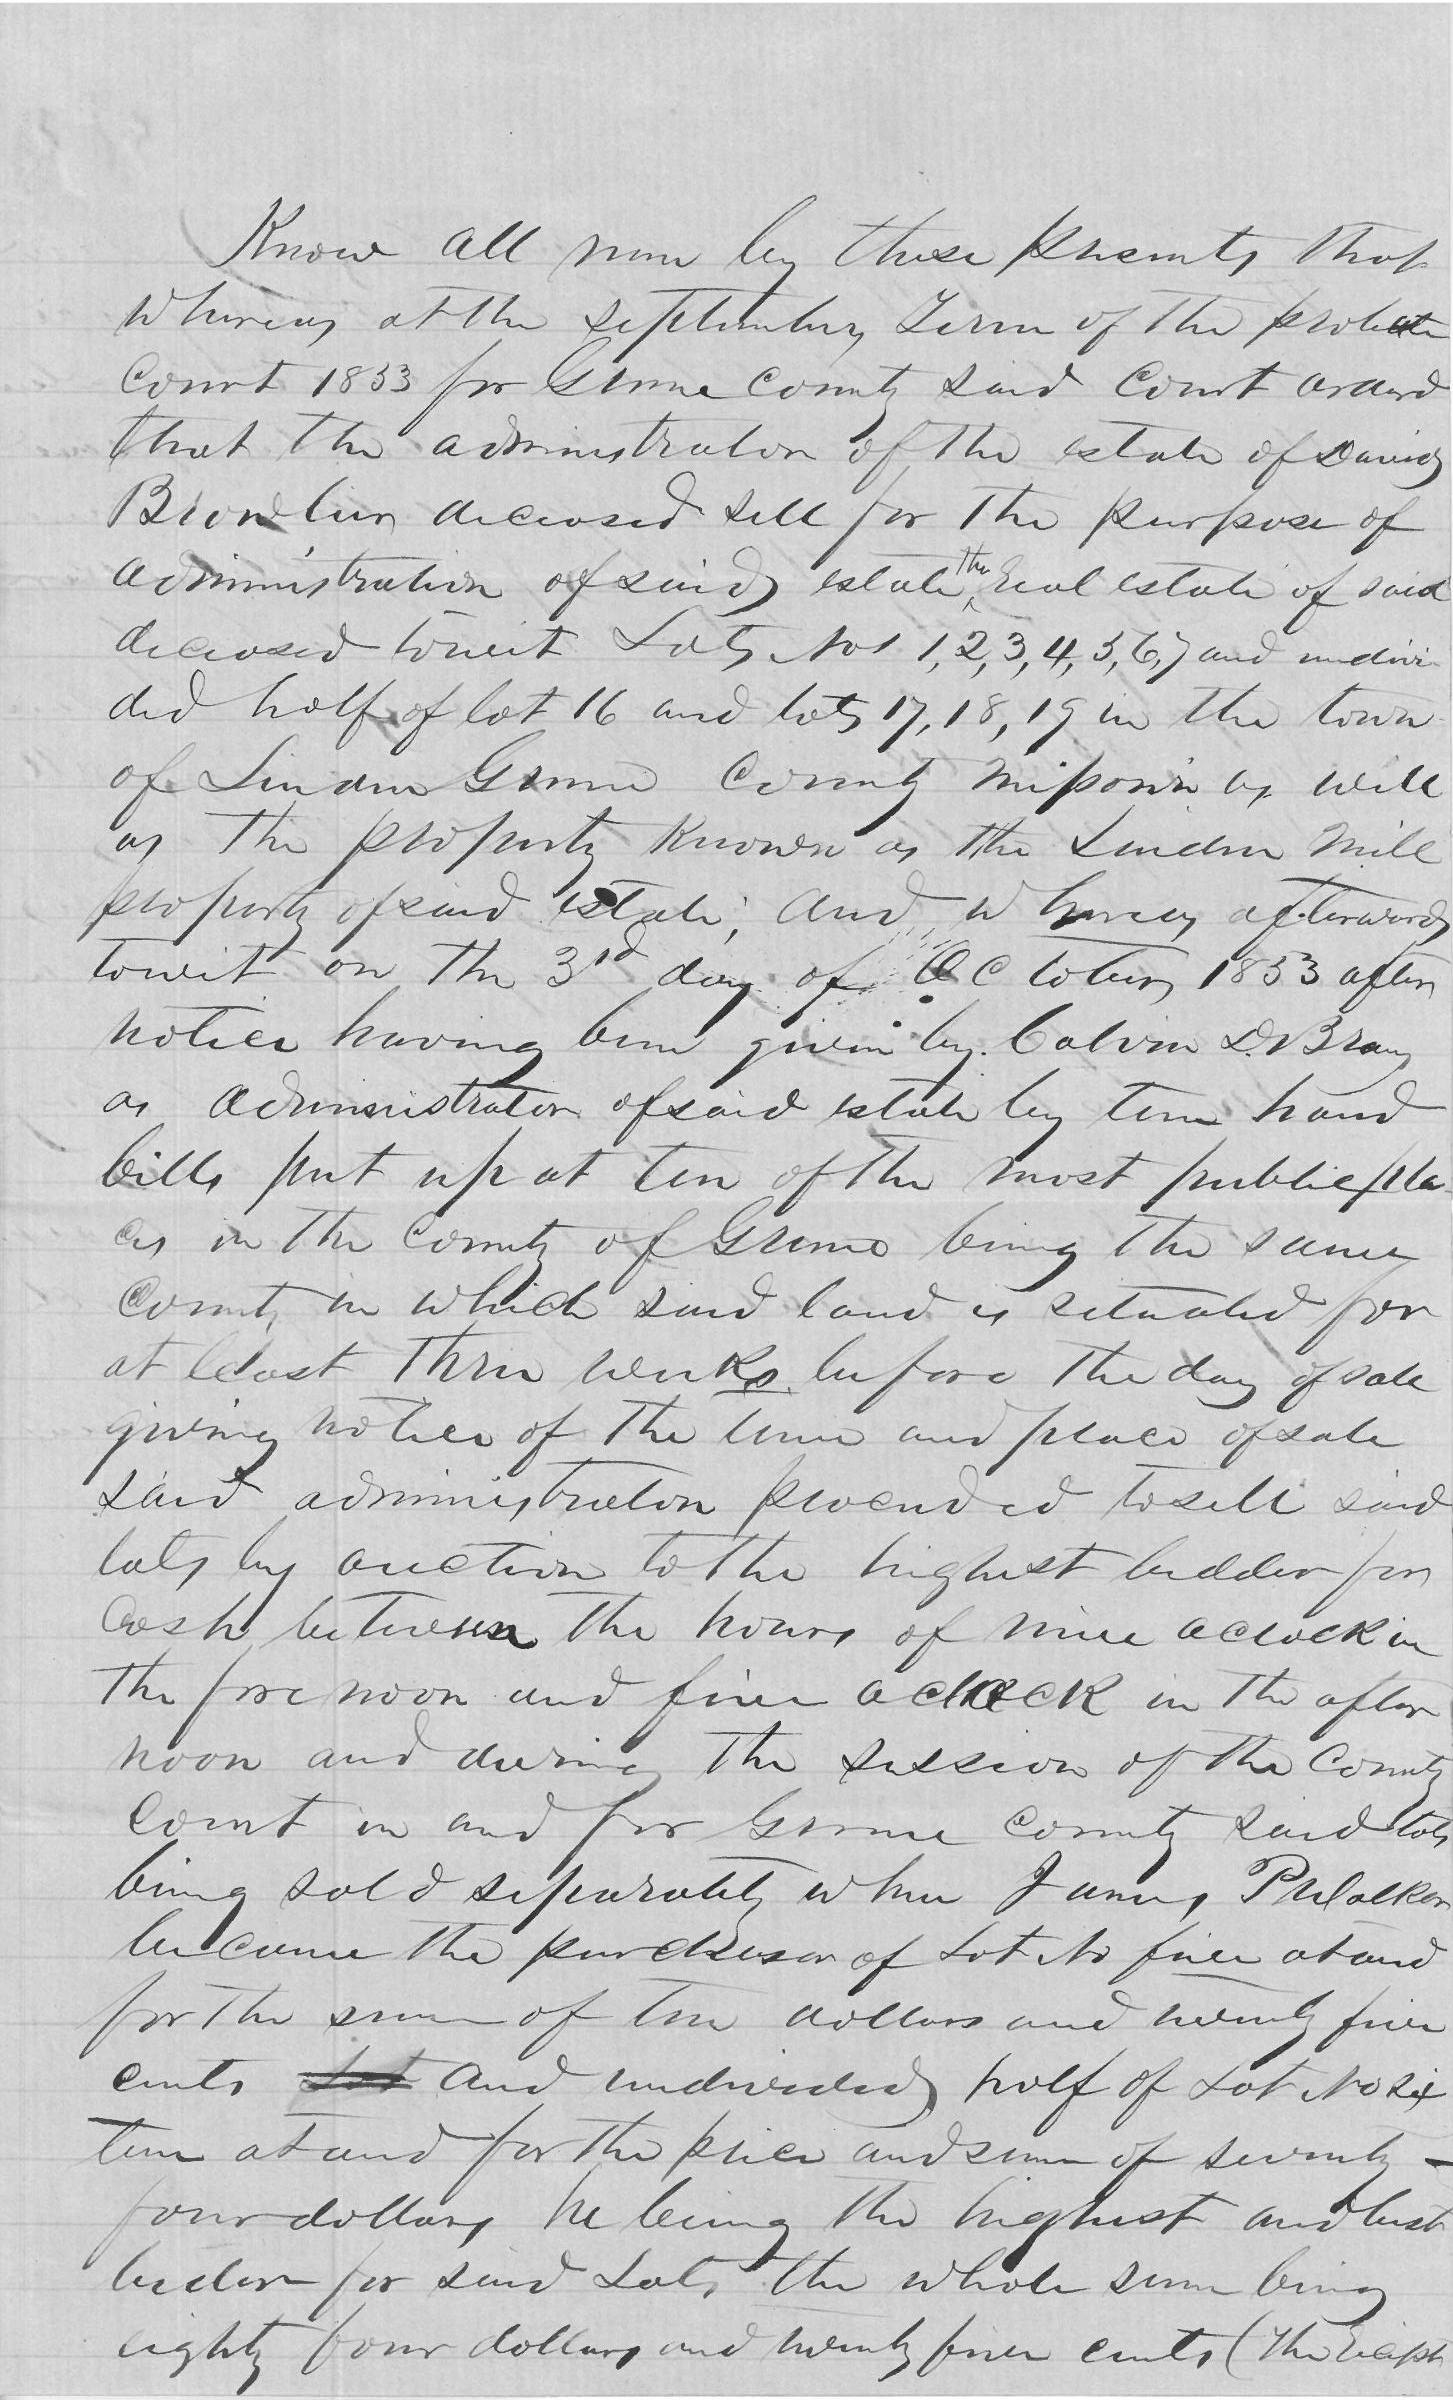 Know all men by these presents that
whereas at the september Term of the probate
Court 1853 for Greene County said Court ordered
that the administrator of the estate of David
deceased sell for the purpose of
administration of said estate the real estate of said
deceased towit Lots Nos 1,2,3,4,5,6,7 and undivi
ded half of lot 16 and lots 17,18,19 in the town
of Linden Greene County Missouri as well
as the property known as the Linden Mill
property of said estate, and whereas afterwards
towit on the 3rd day of October 1853 after
notice having been given by Calvin D. Bray
as administrator of said estate by ten hand
bills put up at ten of the most public pla
ces in the county of Greene being the same
County in which said land is situated for
at least three weeks before the day of sale
giving notice of the time and place of sale
said administrator proceeded to sell said
lots by auction to the highest bidder for
Cash between the hours of nine oclock in
the fore noon and five oclock in the after
noon and during the session of the County
Court in and for Greene County said lots
being sold separately when James P Walker
became the purchaser of Lot No five at and
for the sum of ten dollars and twenty five
cents Lot and undivided half of Lot No six
teen at and for the price and sum of seventy -
four dollars he being the highest and best
bidder for said Lots the whole sum being
eighty four dollars and twenty five cents (the receipt